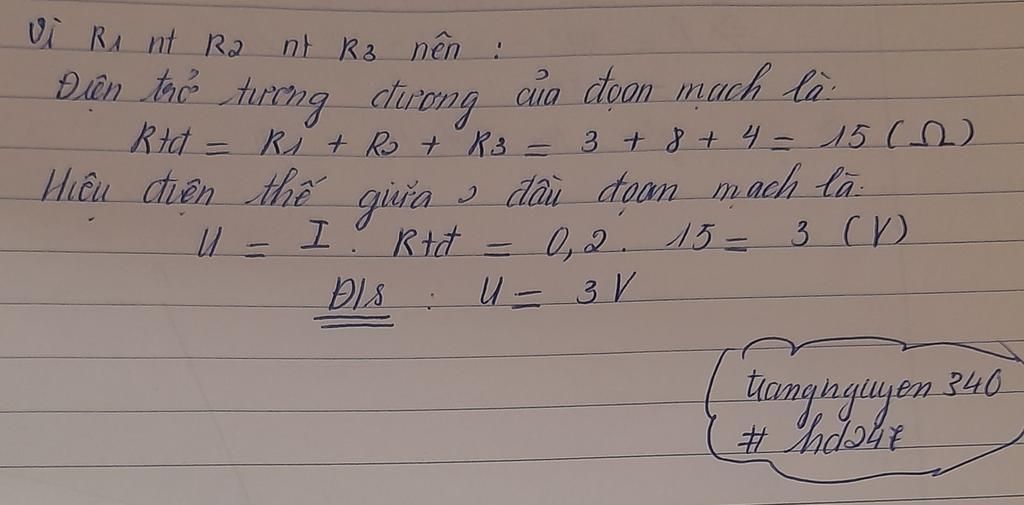 Vì R1 nt R2 nt R3 nên :
Điện trở tương đương của đoạn mạch là:
Rtđ = R1 + R2 + R3 = 3 + 8 + 4 = 15 (Ω)
Hiệu điện thế giữa 2 đầu đoạn mạch là:
U = I . Rtđ = 0,2 . 15 = 3 (V)
Đ/s : U = 3 V
trangnguyen 340
# hd247